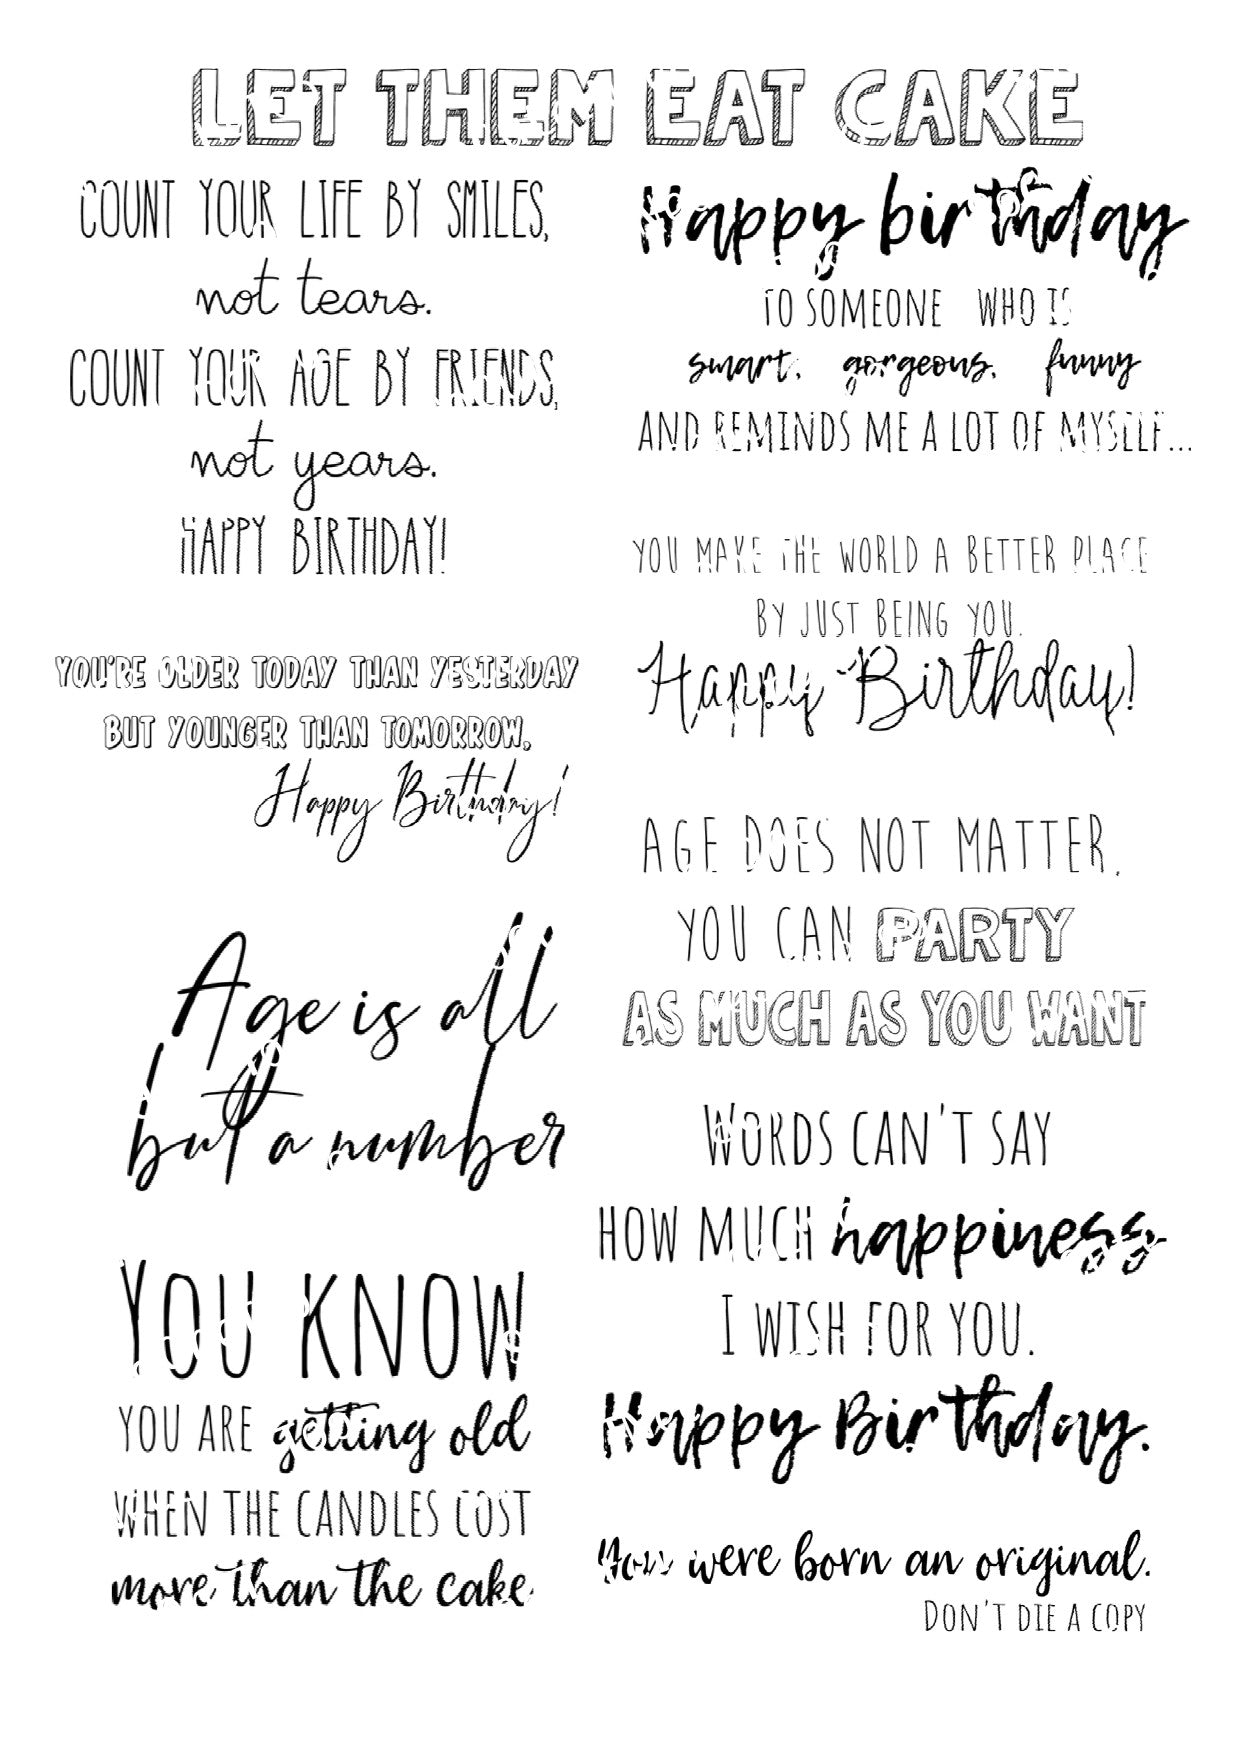 LET THEM EAT CAKE
COUNT YOUR LIFE BY SMILES,
not tears.
COUNT YOUR AGE BY FRIENDS,
not years.
HAPPY BIRTHDAY!
YOU'RE OLDER TODAY THAN YESTERDAY
BUT YOUNGER THAN TOMORROW,
Happy Birthday!
Age is all
but a number
YOU KNOW
YOU ARE getting old
WHEN THE CANDLES COST
more than the cake.
Happy birthday
TO SOMEONE WHO IS
smart, gorgeous, funny
AND REMINDS ME A LOT OF MYSELF...
YOU MAKE THE WORLD A BETTER PLACE
BY JUST BEING YOU.
Happy Birthday!
AGE DOES NOT MATTER,
YOU CAN PARTY
AS MUCH AS YOU WANT
WORDS CAN'T SAY
HOW MUCH happiness
I WISH FOR YOU.
Happy Birthday.
You were born an original.
DON'T DIE A COPY